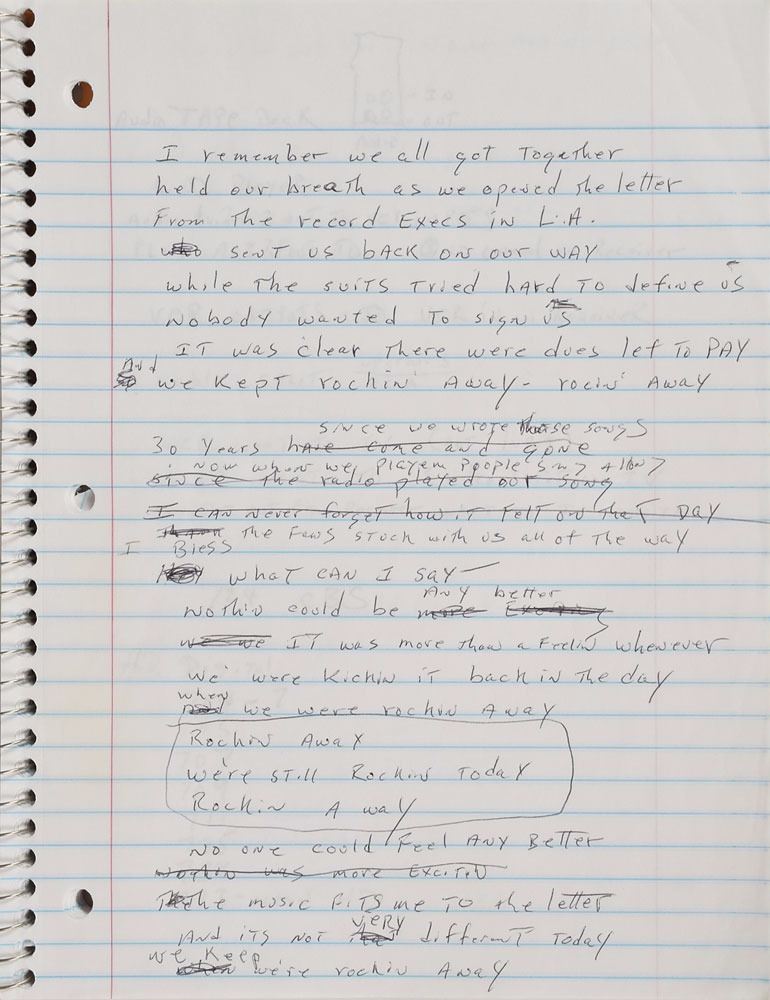 I remember we all got together
held our breath as we opened the letter
From the record Execs in L.A.
who sent us back on our way
while the suits tried hard to define us
nobody wanted to sign us
It was clear there were dues lef to pay
And
we kept rochin' away - rocin' away
since we wrote those songs
30 years have come and gone
now when we playem people sing along
since the radio played our song
I can never forget how it felt on that day
the fans stuck with us all of the way
I Bless
what can I say
any better
nothin could be more Exciting
we were It was more than a feelin whenever
we were kickin it back in the day
when
we were rochin away
Rochin Away
we're still Rochin today
Rochin Away
No one could feel any better
nothin was more Excited
the music fits me to the letter
very
And its not different today
we keep
when we're rochin away